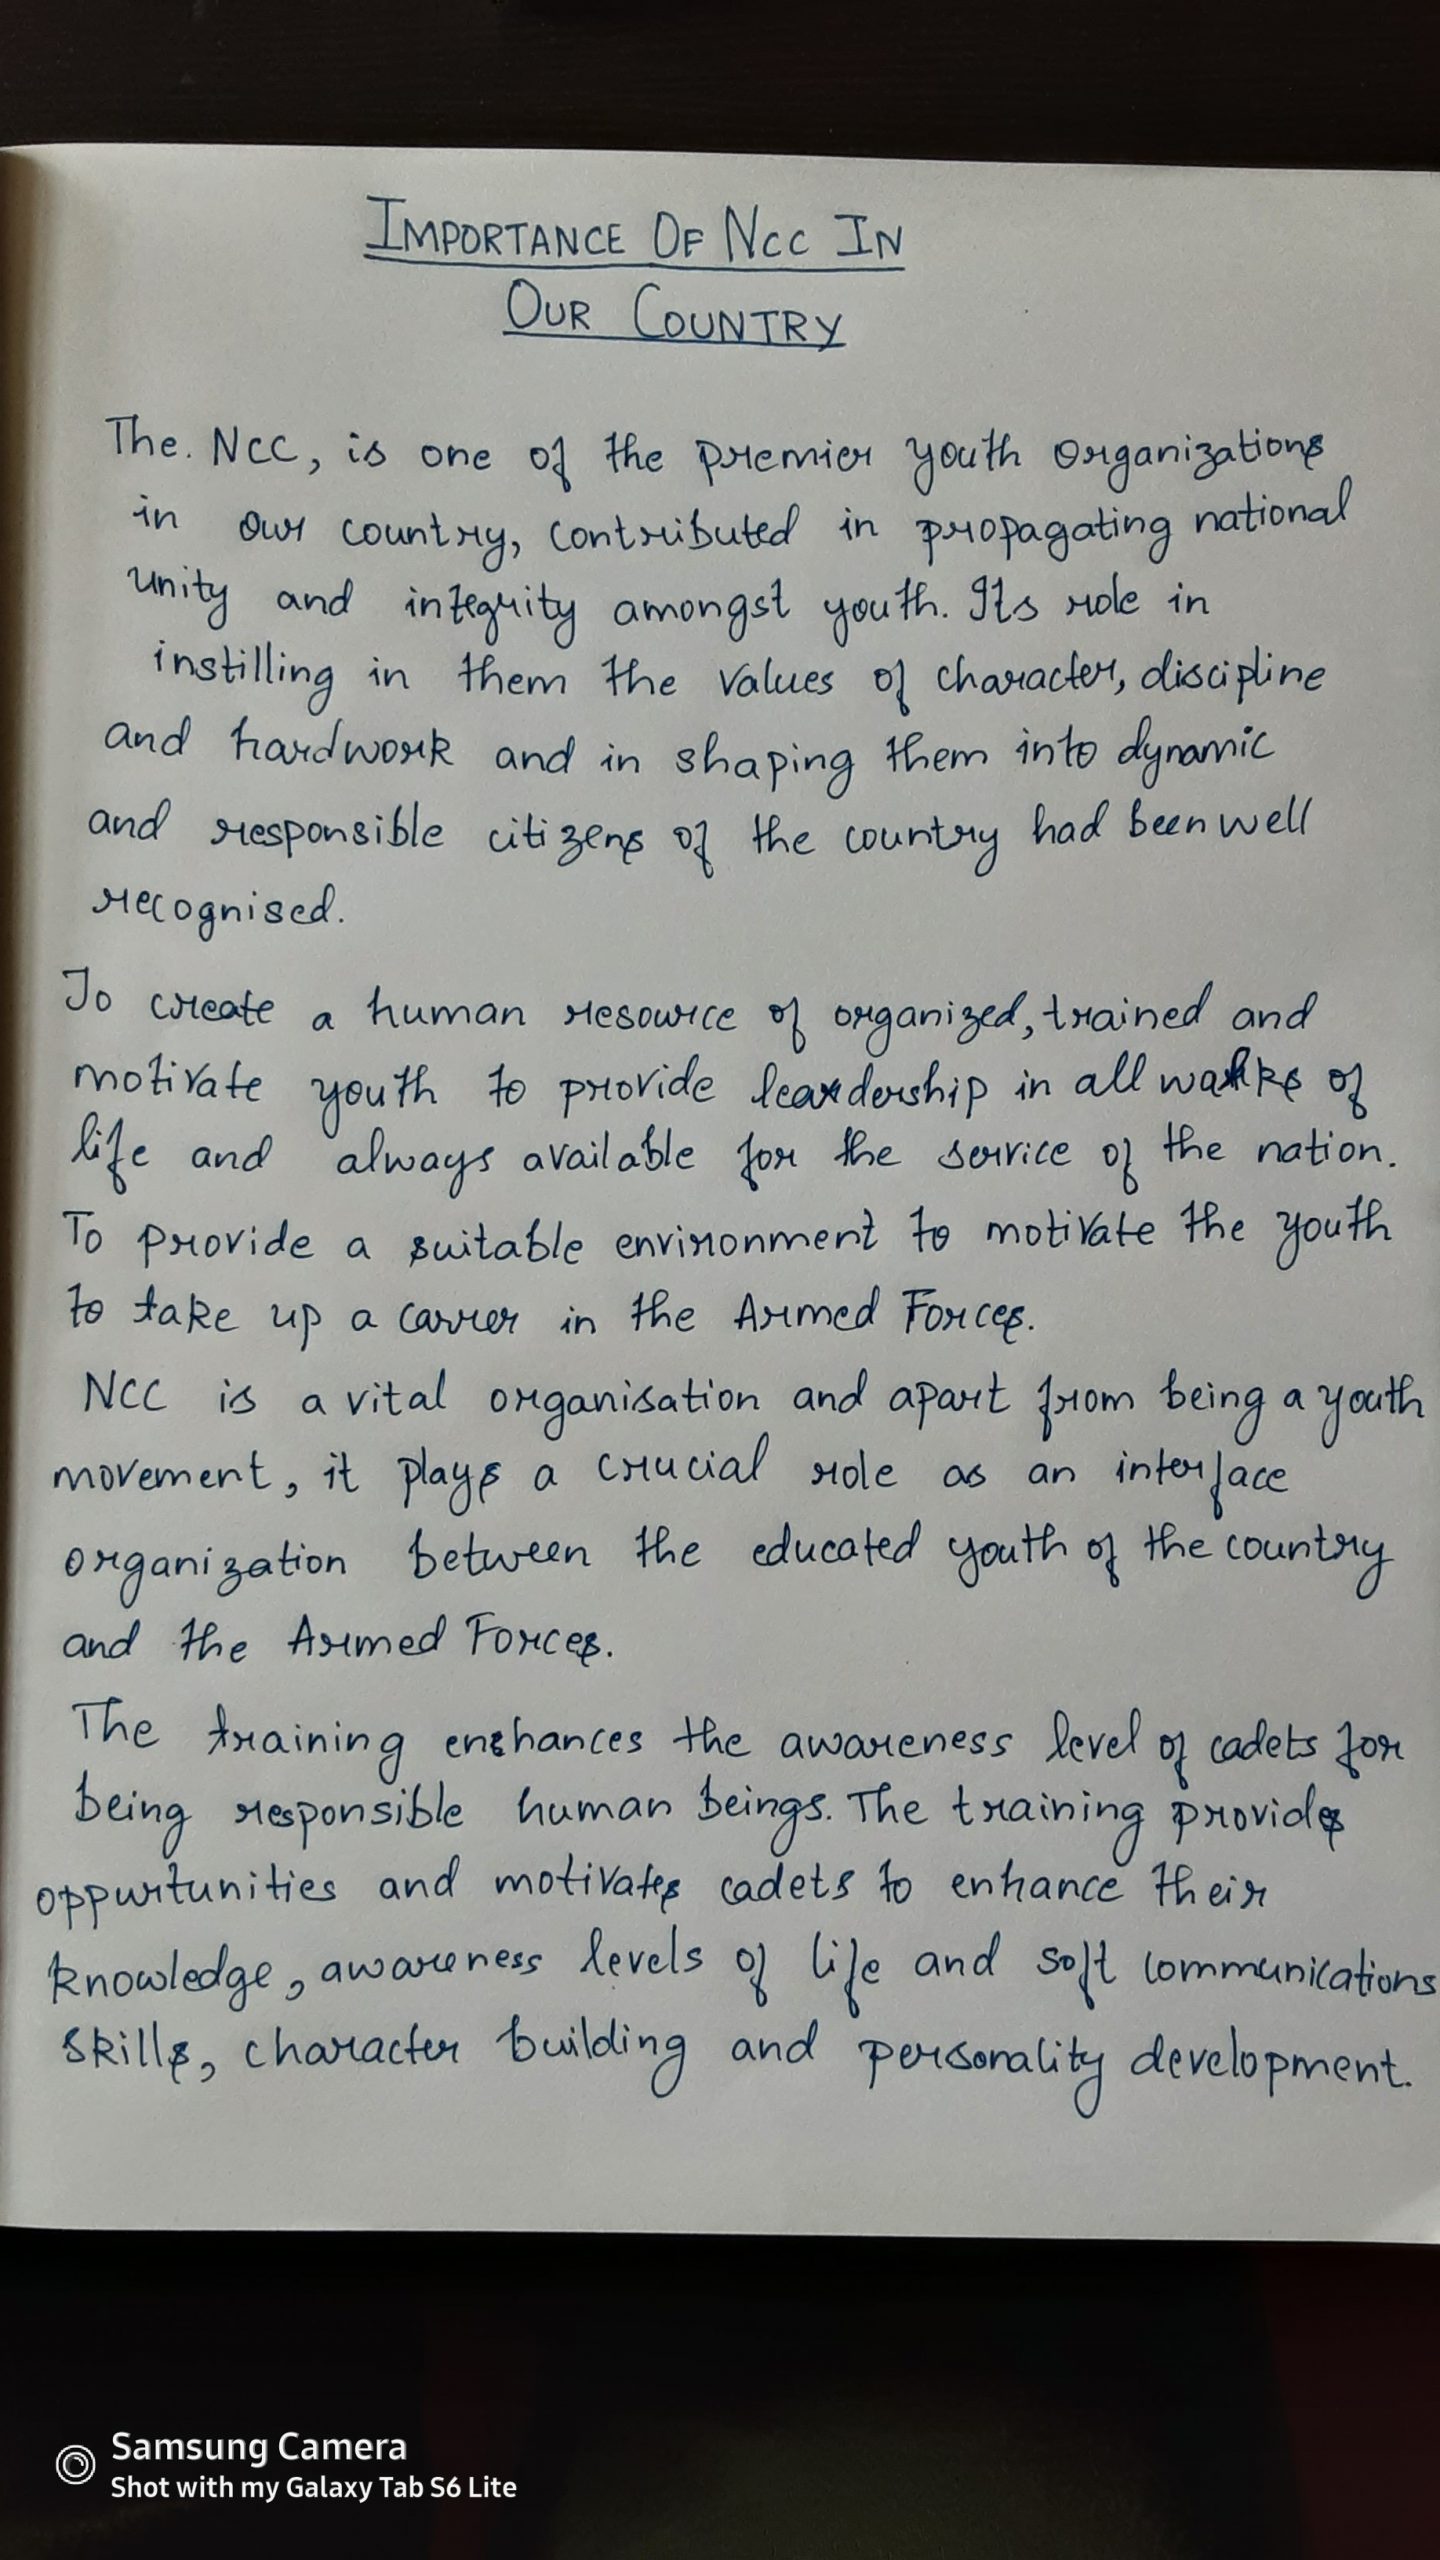 IMPORTANCE OF NCC IN
OUR COUNTRY
The. NCC, is one of the premier youth organizations
in our country, contributed in propagating national
unity and integrity amongst youth. Its role in
instilling in them the values of character, discipline
and hardwork and in shaping them into dynamic
and responsible citizens of the country had been well
recognised.
To create a human resource of organized, trained and
motivate youth to provide leadership in all walks of
life and always available for the service of the nation.
To provide a suitable environment to motivate the youth
to take up a carrer in the Armed Forces.
NCC is a vital organisation and apart from being a youth
movement, it plays a crucial role as an interface
organization between the educated youth of the country
and the Armed Forces.
The training enhances the awareness level of cadets for
being responsible human beings. The training provides
oppurtunities and motivates cadets to enhance their
knowledge, awareness levels of life and soft communications
skills, character building and personality development.
Samsung Camera
Shot with my Galaxy Tab S6 Lite